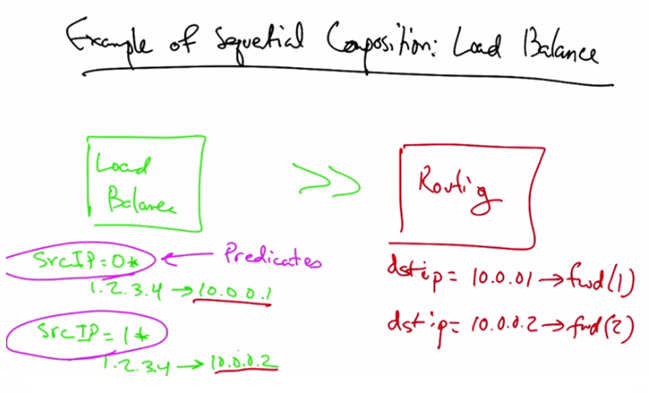 Example of Sequetial Composition: Load Balance
Load
Balance
>>
Routing
SrcIP=0*
← Predicates
1.2.3.4 → 10.0.0.1
SrcIP=1*
1.2.3.4 → 10.0.0.2
dstip = 10.0.01 → fwd(1)
dstip= 10.0.0.2 → fwd(2)